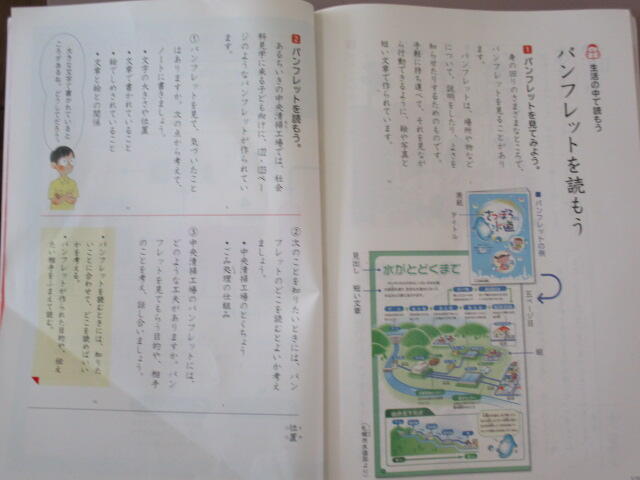 生活の中で読もう
パンフレットを読もう
1 パンフレットを見てみよう。
身の回りのさまざまなところで、
パンフレットを見ることがあり
ます。
パンフレットは、場所や物など
について、説明をしたり、よさを
知らせたりするためのものです。
手軽に持ち運べて、それを見なが
ら行動できるように、絵や写真と
短い文章で作られています。
■パンフレットの例
表紙
タイトル
さっぽろ
水道
五ページ目
見出し
水がとどくまで
短い文章
絵
(札幌市水道局より)
2 パンフレットを読もう。
あるちいきの中央清掃工場では、社会
科見学に来る子ども向けに、
ジのようなパンフレットが作られてい
ます。
① パンフレットを見て、気づいたこと
はありますか。次の点から考えて、
ノートに書きましょう。
・文字の大きさや位置
・文章で書かれていること
・絵でしめされていること
・文章と絵との関係
大きな文字で書かれていると
ころがあるね。どうしてだろう。
② 次のことを知りたいときには、パン
フレットのどこを読むとよいか考え
ましょう。
・中央清掃工場のとくちょう
・ごみ処理の仕組み
③ 中央清掃工場のパンフレットには、
どのような工夫がありますか。パン
フレットを見てもらう目的や、相手
のことを考え、話し合いましょう。
・パンフレットを読むときには、知りた
いことに合わせて、どこを読めばいい
かを考える。
・パンフレットが作られた目的や、伝え
たい相手をふまえて読む。
位置